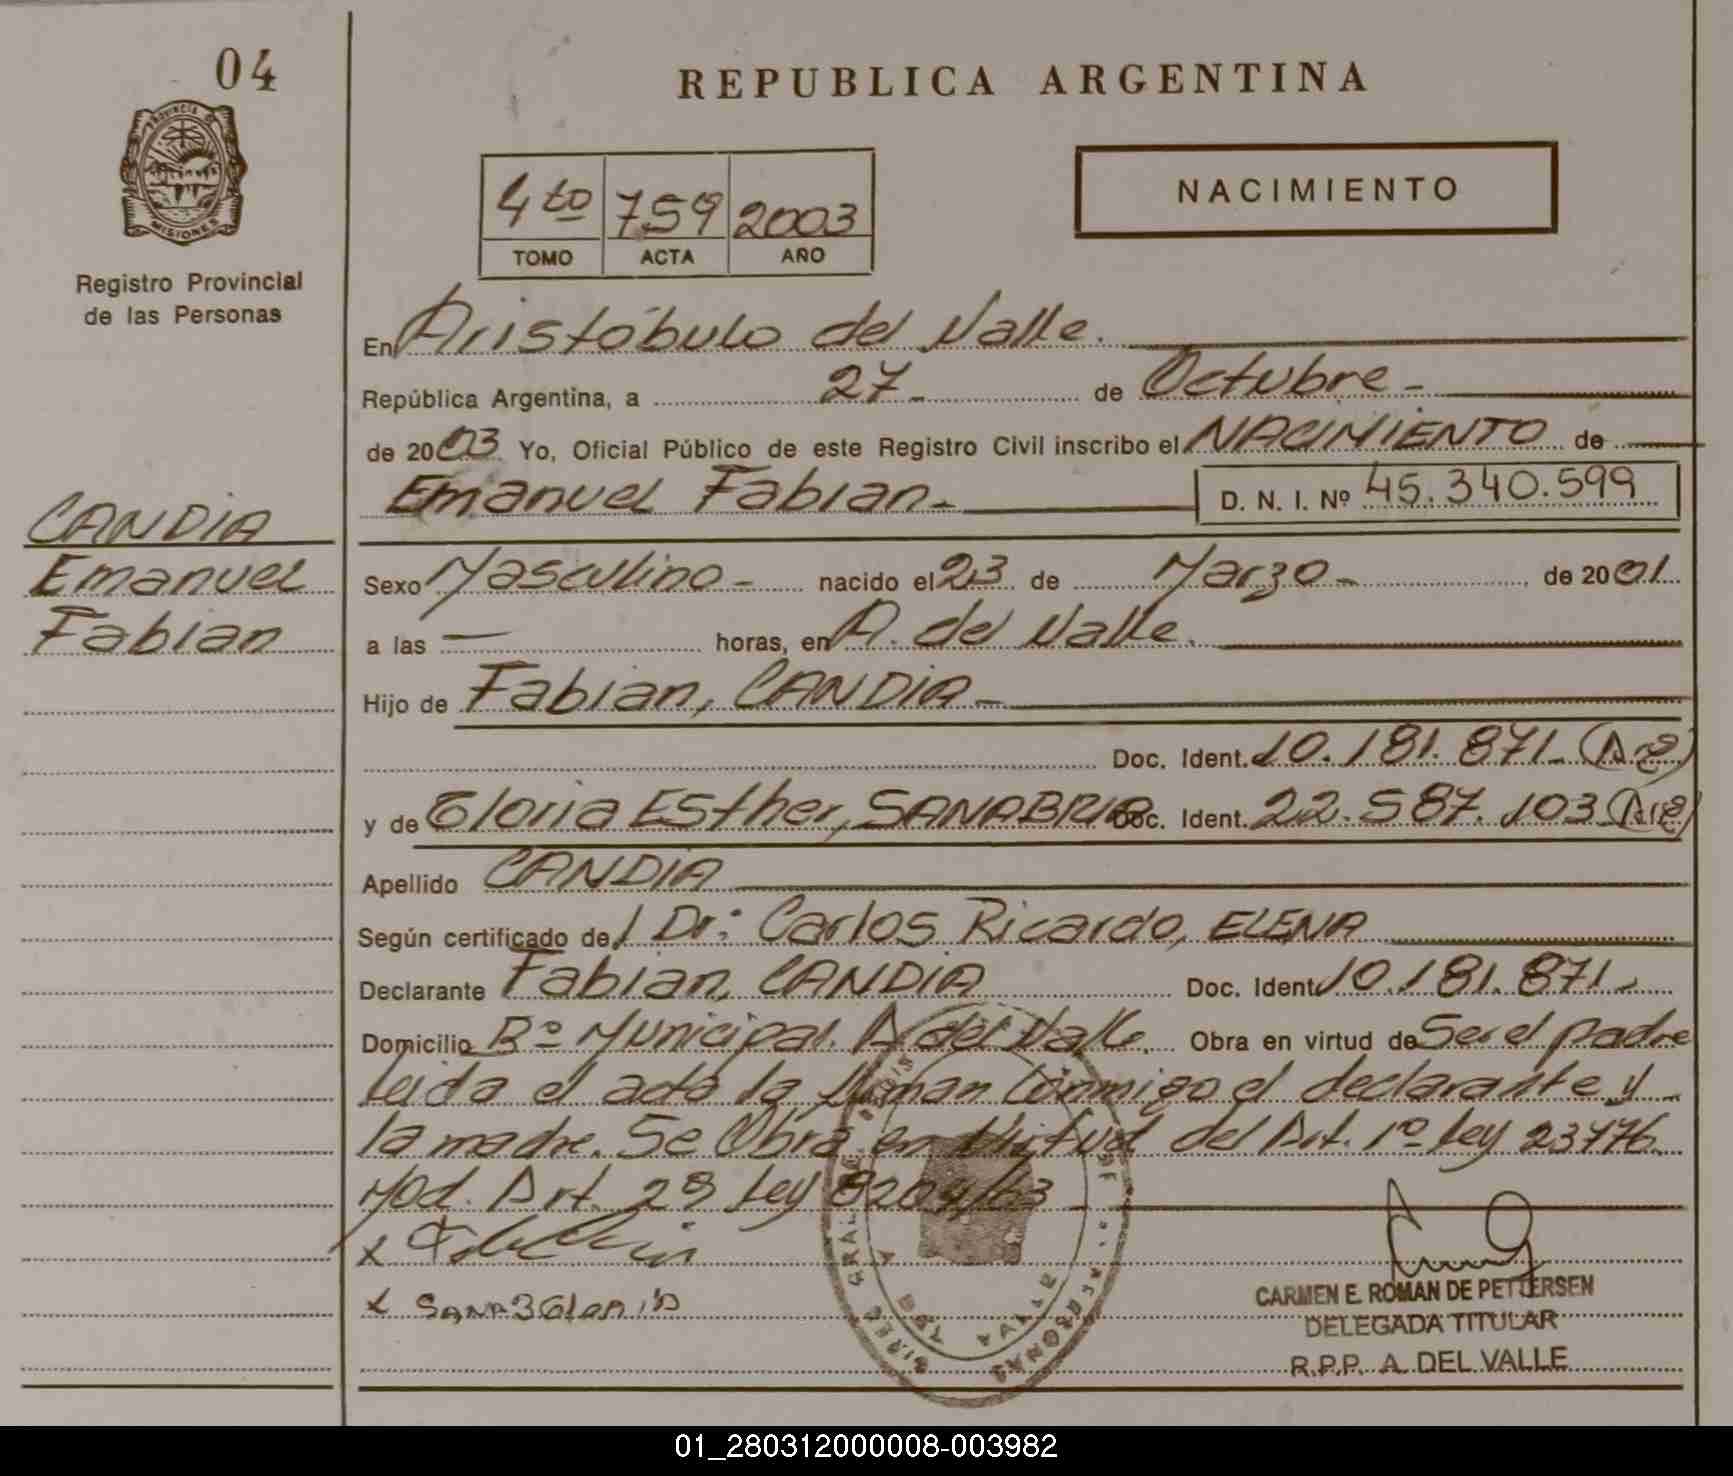 04
PROVINCIA D
MISIONES
Registro Provincial
de las Personas
CANDIA
Emanuel
Fabian
REPUBLICA ARGENTINA
4to 759 2003
TOMO ACTA AÑO
NACIMIENTO
En Aristóbulo del Valle.
República Argentina, a 27 de Octubre
de 2003 Yo, Oficial Público de este Registro Civil inscribo el NACIMIENTO de
Emanuel Fabian D. N. I. Nº 45.340.599
Sexo Masculino nacido el 23 de Marzo de 2001
a las — horas, en A. del Valle.
Hijo de Fabian, CANDIA
Doc. Ident. 10.181.871
y de Gloria Esther, SANABRIA Doc. Ident. 22.587.103
Apellido CANDIA
Según certificado del Dr: Carlos Ricardo, ELENA
Declarante Fabian, CANDIA Doc. Ident. 10.181.871
Domicilio Bº Municipal. A del Valle. Obra en virtud de Ser el padre
Leida el acta la firman conmigo el declarante y
la madre. Se Obra en Virtud del Art. 1º Ley 23776
Mod. Art. 28 Ley 8204/63
x
x
CARMEN E. ROMAN DE PETTERSEN
DELEGADA TITULAR
R.P.P. A. DEL VALLE
01_280312000008-003982